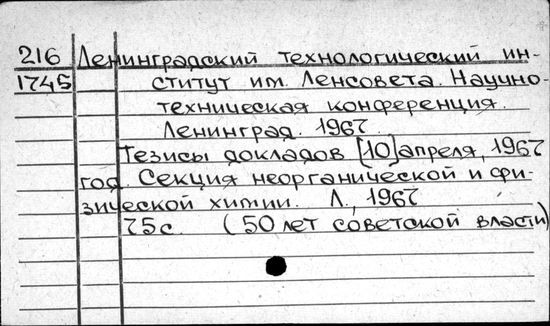 216 Ленинградский технологический ин-
1745 ститут им. Ленсовета. Научно-
техническая конференция.
Ленинград. 1967.
Тезисы докладов [10] апреля, 1967
год. Секция неорганической и фи-
зической химии. Л., 1967
75с (50 лет советской власти)